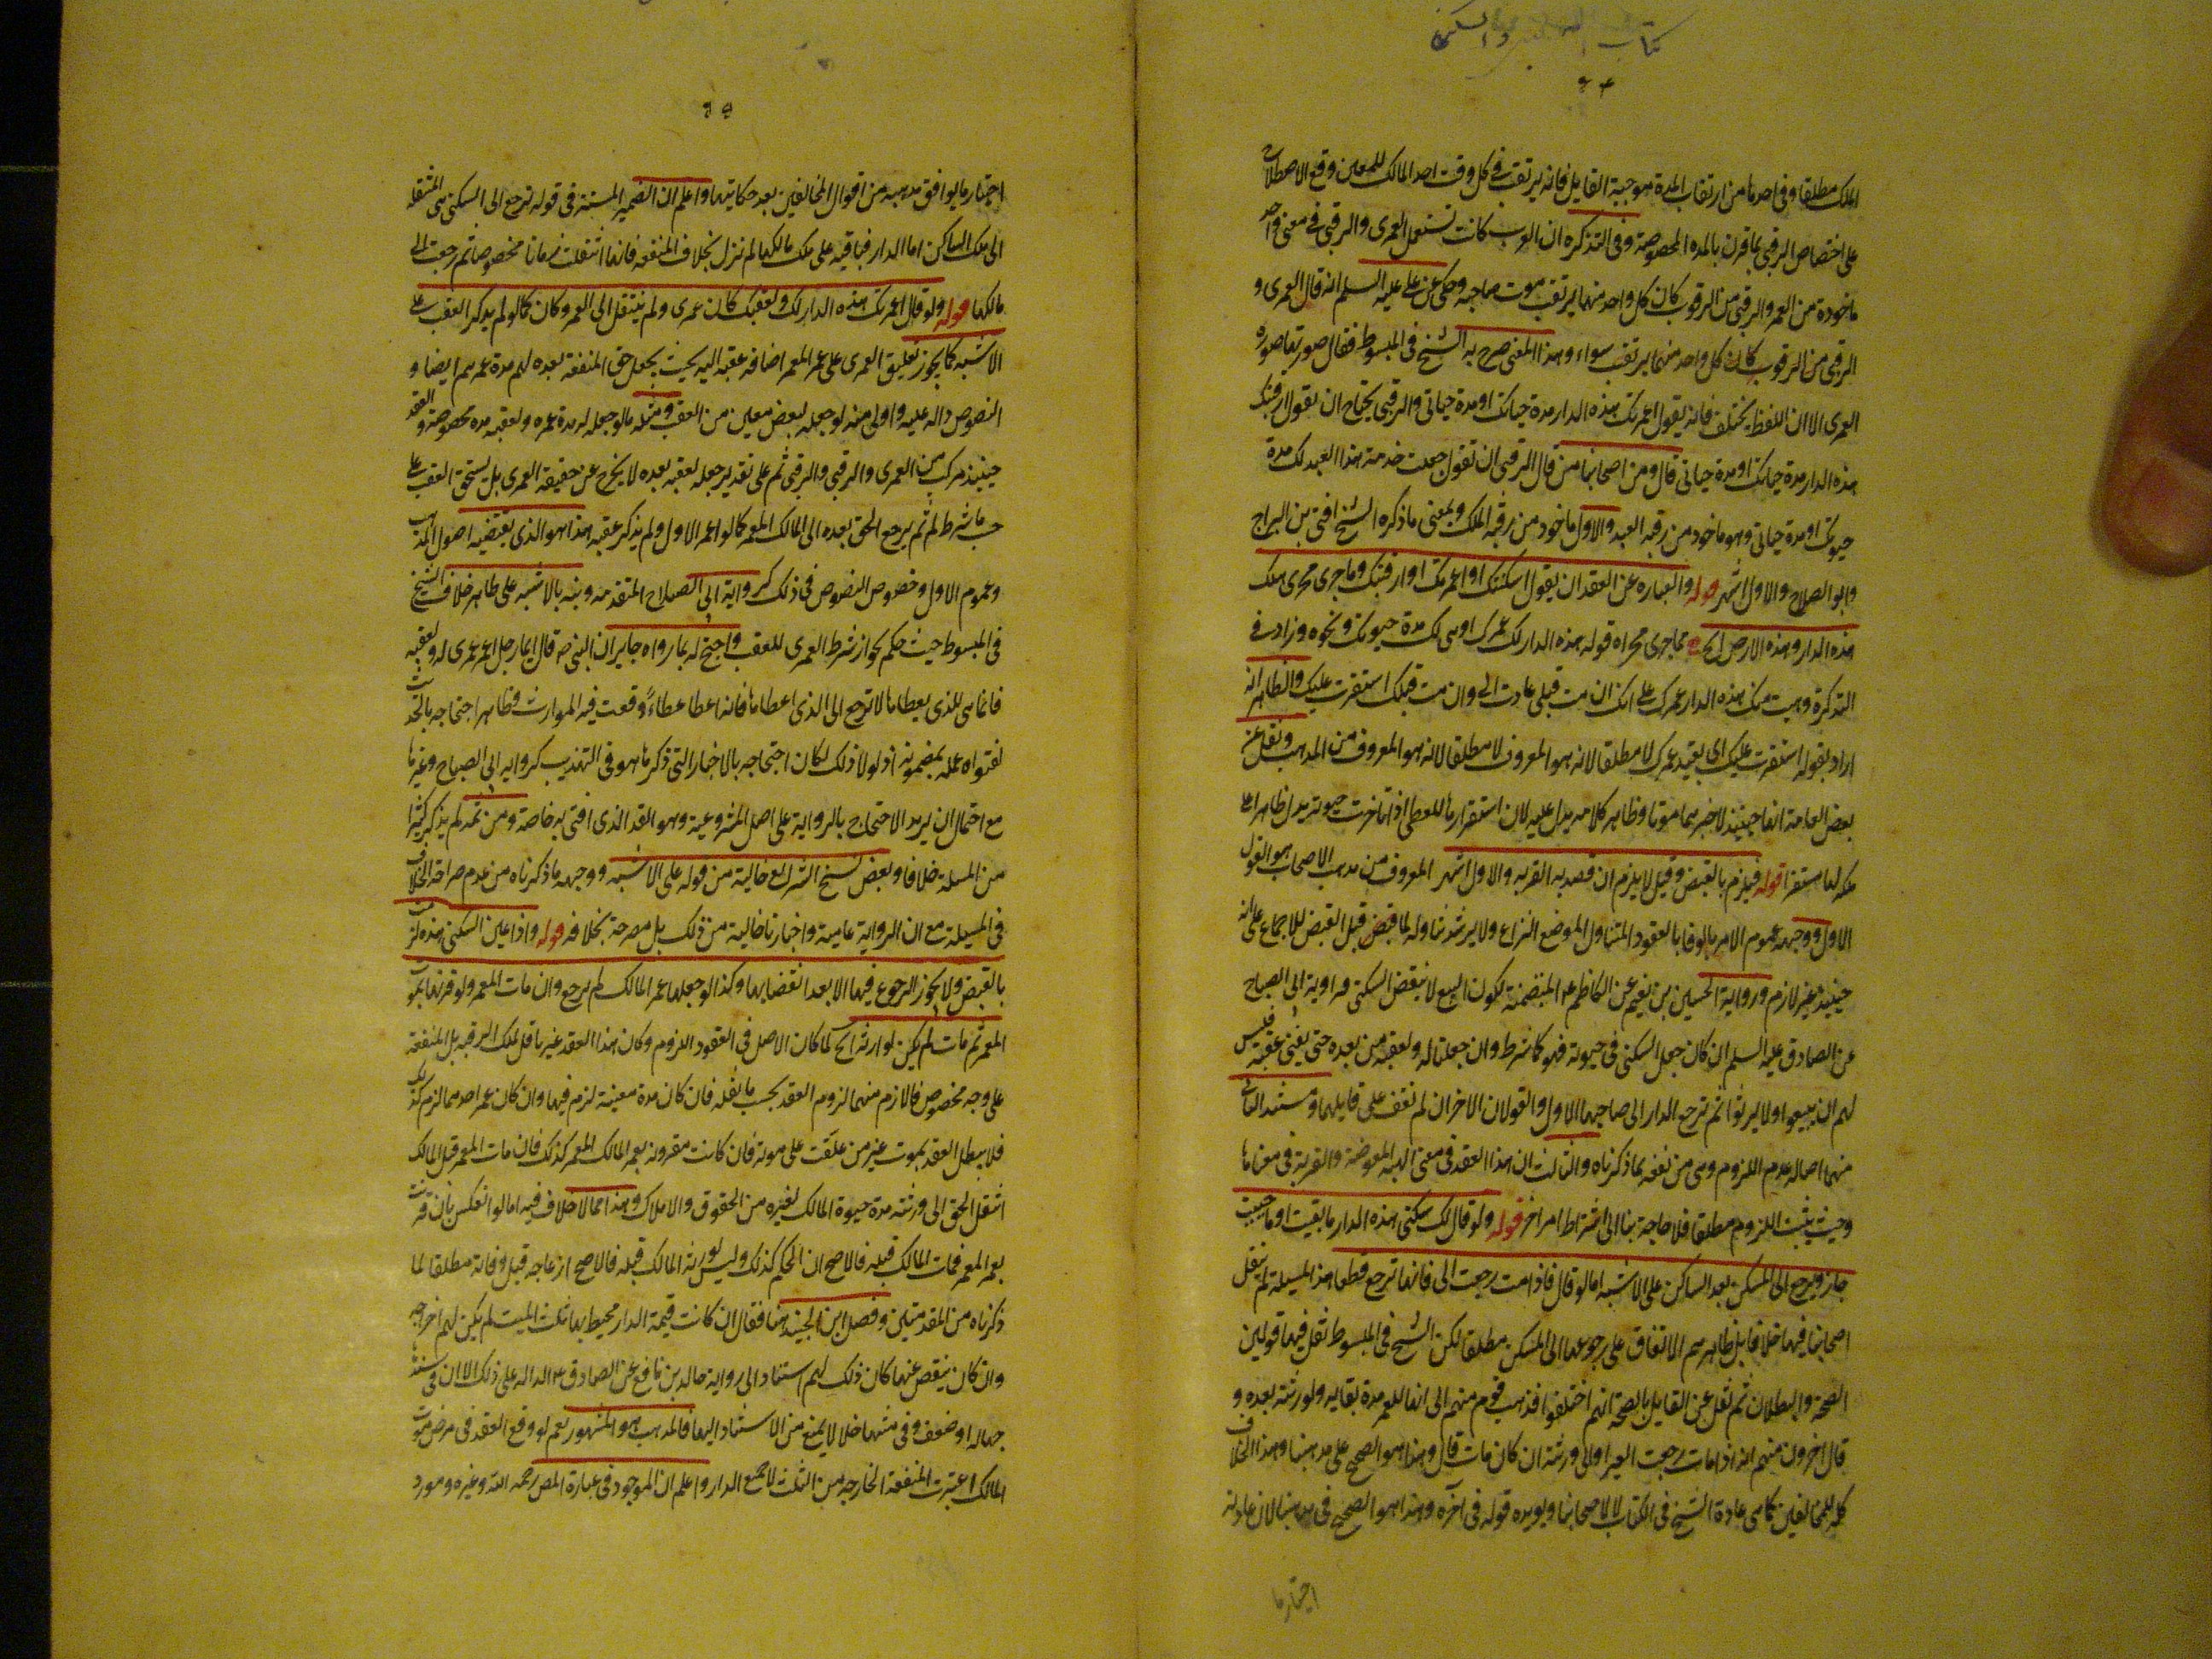 كتاب والسكنى
الملك مطلقا وفى احدهما من ارتقاب المدة موجبة القابل فانه يرتقب فى كل وقت احد المالك للمعين وقع الاصطلاح
على اختصاص الرقبى بما قرن بالمدة المخصوصة وفى التذكره ان العرب كانت تستعمل العمرى والرقبى فى معنى واحد
ماخوذة من العمر والرقبى من الرقوب كان كل واحد منهما يرتقب موت صاحبه وحكى عن على عليه السلم انه قال العمرى و
الرقبى من الرقوب كان كل واحد منهما يرتقب سواء وهذا المعنى صرح به الشيخ فى المبسوط فقال صورتها صورة
العمرى الا ان اللفظ يختلف فانه يقول اعمرتك هذه الدار مدة حياتك او مدة حياتى والرقبى يحتاج ان يقول ارقبتك
هذه الدار مدة حياتك او مدة حياتى قال ومن اصحابنا من قال الرقبى ان تقول جعلت خدمة هذا العبد لك مدة
حيوتك او مدة حياتى وهو ماخوذ من رقبة العبد والاول ماخوذ من رقبة الملك وبمعنى ما ذكره الشيخ افتى بن البراج
وابو الصلاح والاول اشهر قوله والعباره عن العقد ان يقول اسكنتك او اعمرتك او ارقبتك وما جرى مجرى ملك
هذه الدار وهذه الارض الخ مما جرى مجراه قوله هذه الدار لك عمرك او هى لك مدة حيوتك ونحوه وزاد فى
التذكرة وهبت منك هذه الدار عمرك على انك ان مت قبلى عادت الى وان مت قبلك استقرت عليك والظاهر انه
اراد بقوله استقرت عليك اى بقيد عمرك لا مطلقا لانه هو المعروف لا مطلقا لانه هو المعروف من المذهب ونقل عن
بعض العامة انها حينئذ لاخرهما موتا وظاهر كلامه يدل عليه لان استقرارها للمعطى اذا تاخرت حيوته يدل ظاهرا على
ملكه لها مستقرا قوله فيلزم بالقبض وقيل لا يلزم ان قصد به القربه والاول اشهر المعروف من مذهب الاصحاب هو القول
الاول ووجهه عموم الامر بالوفا بالعقود المتناول لموضع النزاع ولا يرد تناوله لما قبل القبض للاجماع على انه
حينئذ غير لازم ورواية الحسين بن نعيم عن الكاظم ع المتضمنة لكون البيع لا ينقض السكنى ورواية ابى الصباح
عن الصادق عليه السلم ان كان جعل السكنى فى حيوته فهو كما شرط وان جعلها له ولعقبه من بعده حتى يفنى عقبه فليس
لهم ان يبيعوا ولا يرثوا ثم ترجع الدار الى صاحبها الاول والقولان الاخران لم نقف على قايلهما ومستند الثانى
منهما اصاله عدم اللزوم وهى من نفعه بما ذكرناه والثالث ان هذا العقد فى معنى الهبة المعوضة والقربة فى معناها
وحيث يثبت اللزوم مطلقا فلا حاجة بنا الى اشتراط امر اخر قوله ولو قال لك سكنى هذه الدار ما بقيت او ما حييت
جاز ويرجع الى المسكن بعد الساكن على الاشبه اما لو قال فاذا مت رجعت الى فانها ترجع قطعا هذا المسيله لم ينقل
اصحابنا فيها خلافا بل ظاهرهم الاتفاق على رجوعها الى المسكن مطلقا لكن الشيخ فى المبسوط نقل فيها قولين
الصحة والبطلان ثم نقل عن القايل بالصحة انهم اختلفوا فذهب قوم منهم الى انها للمعمر مدة بقايه ولورثته بعده و
قال اخرون منهم انه اذا مات رجعت الى المعمر او الى ورثته ان كان مات قال وهذا هو الصحيح على مذهبنا وهذا الخلاف
كله للمخالفين كما هى عادة الشيخ فى الكتاب لا لاصحابنا ويويده قوله فى اخره وهذا هو الصحيح فى مذهبنا لان عادته
اختيار ما
اختيار ما يوافق مذهبه من اقوال المخالفين بعد حكايتها واعلم ان الضمير المستتر فى قوله ترجع الى السكنى هى المنتقله
الى ملك الساكن اما الدار فباقية على ملك مالكها لم تزل بخلاف المنفعه فانها انتقلت زمانا مخصوصا ثم رجعت الى
مالكها قوله ولو قال اعمرتك هذه الدار لك ولعقبك كان عمرى ولم ينتقل الى المعمر وكان كما لو لم يذكر العقب على
الاشبه كما يجوز تعليق العمرى على عمر المعمر اضافه عقبه اليه بحيث يجعل حق المنفعة بعده لهم مدة عمرهم ايضا و
النصوص داله عليه واولى منه لو جعله لبعض معين من العقب ومثله ما لو جعله له مدة عمره ولعقبه مدة مخصوصة والعقد
حينئذ مركب من العمرى والرقبى والرقبى ثم على تقدير جعله لعقبه بعده لا يخرج عن حقيقة العمرى بل يستحق العقب على
حسب ما شرط لهم ثم يرجع الحق بعده الى المالك المعمر كما لو اعمر الاول ولم يذكر عقبه هذا هو الذى يقتضيه اصول المذهب
وعموم الاول وخصوص النصوص فى ذلك كرواية ابى الصلاح المتقدمه ونبه بالاشبه على ظاهر خلاف الشيخ
فى المبسوط حيث حكم بجواز شرط العمرى للعقب واحتج له بما رواه جابر ان النبى ص قال ايما رجل اعمر عمرى له ولعقبه
فانما هى للذى يعطاها لا ترجع الى الذى اعطاها فانه اعطا عطاء وقعت فيه المواريث وظاهر احتجاجه بالحديث
لفتواه عمله بمضمونه اذ لولا ذلك لكان احتجاجه بالاخبار التى ذكرها هو فى التهذيب كروايه ابى الصباح وغيرها
مع احتمال ان يريد الاحتجاج بالرواية على اصل المشروعية وهو القدر الذى افتى به خاصة ومن ثم لم يذكر كثير
من المسله خلافا وبعض نسخ الشرائع خالية من قوله على الاشبه ووجهه ما ذكرناه من عدم صراحة الخلاف
فى المسيلة مع ان الرواية عامية واخبارنا خالية من ذلك بل مصرحة بخلافه قوله واذا عين السكنى مدة لزمت
بالقبض ولا يجوز الرجوع فيها الا بعد انقضايها وكذا لو جعلها عمر المالك لم يرجع وان مات المعمر ولو قرنها بموت
المعمر ثم مات لم يكن لوارثه الخ لما كان الاصل فى العقود اللزوم وكان هذا العقد غير ناقل لملك الرقبه بل المنفعة
على وجه مخصوص فاللازم منهما لزوم العقد بحسب ما نقله فان كان مدة معينة لزم فيها وان كان عمر احدهما لزم كذلك
فلا يبطل العقد بموت غير من علقت على موته فان كانت مقرونة بعمر المالك المعمر كذلك فان مات المعمر قبل المالك
انتقل الحق الى ورثته مدة حيوة المالك لغيره من الحقوق والاملاك وهذا مما لا خلاف فيه اما لو انعكس بان قرنت
بعمر المعمر فمات المالك قبله فالاصح ان الحكم كذلك وليس لورثة المالك قبله فالاصح ازعاجه قبل وفاته مطلقا لما
ذكرناه من المقدمتين وفصل ابن الجنيد هنا فقال ان كانت قيمة الدار محيط بها ثلث الميت لم يكن لهم اخراجه
وان كان ينقص عنها كان ذلك لهم استنادا الى رواية خالد بن نافع عن الصادق ع الداله على ذلك الا ان فى سندها
جهاله او ضعف وفى متنها خلالا يمنع من الاستناد اليها فالمذهب هو المشهور نعم لو وقع العقد فى مرض موت
المالك اعتبرت المنفعة الخارجه من الثلث لا جميع الدار واعلم ان الموجود فى عبارة المص رحمه الله وغيره ومورد